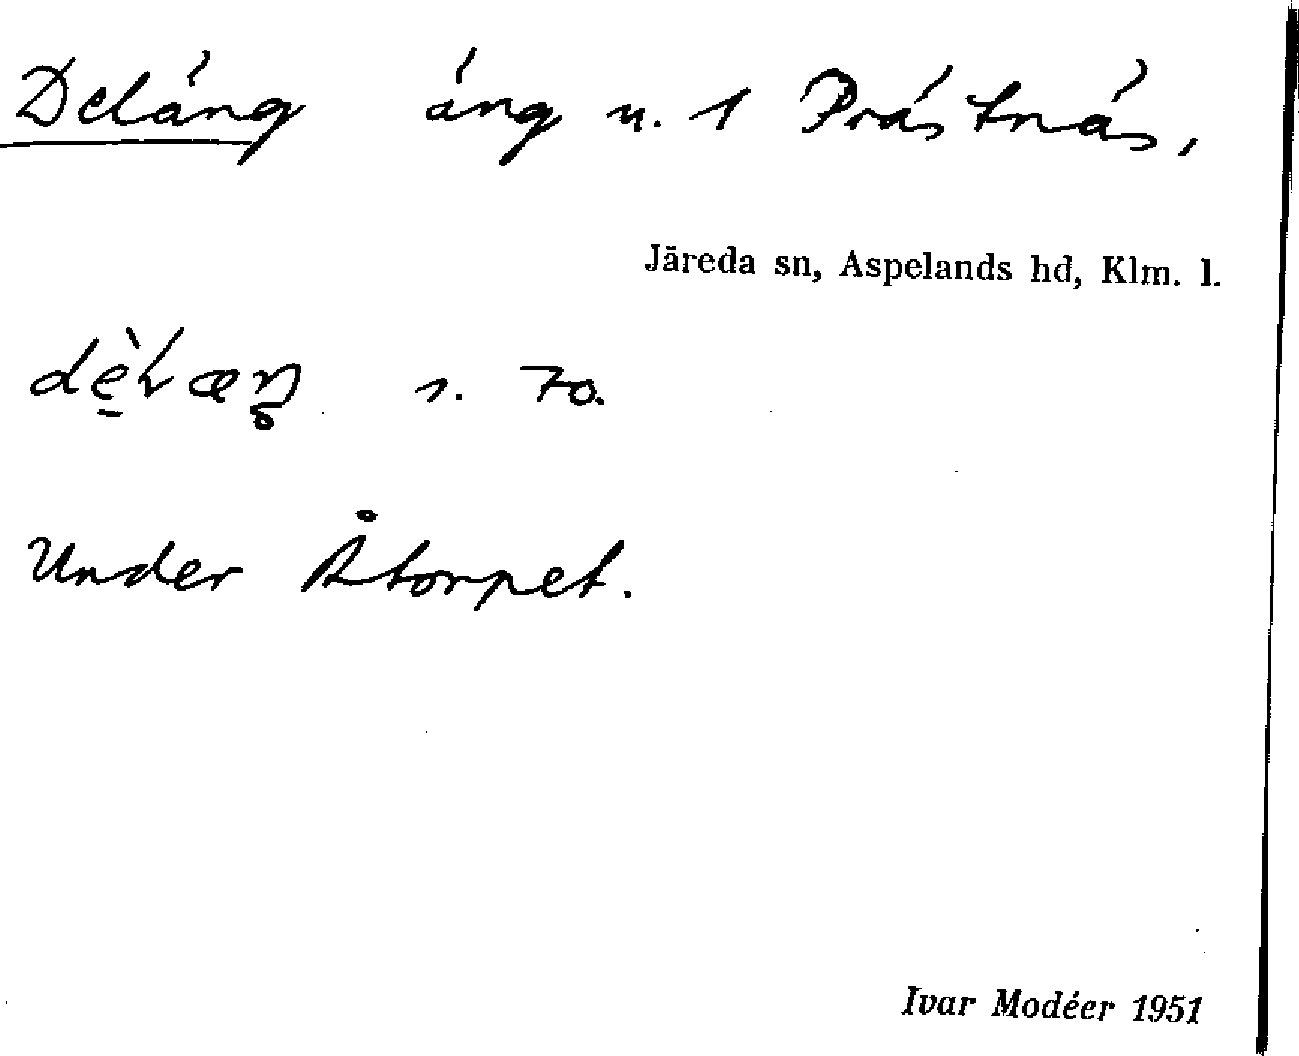 Deläng äng u. 1 Prästnäs,
Järeda sn, Aspelands hd, Klm. l.
s. 70.
Under Åtorpet.
Ivar Modéer 1951